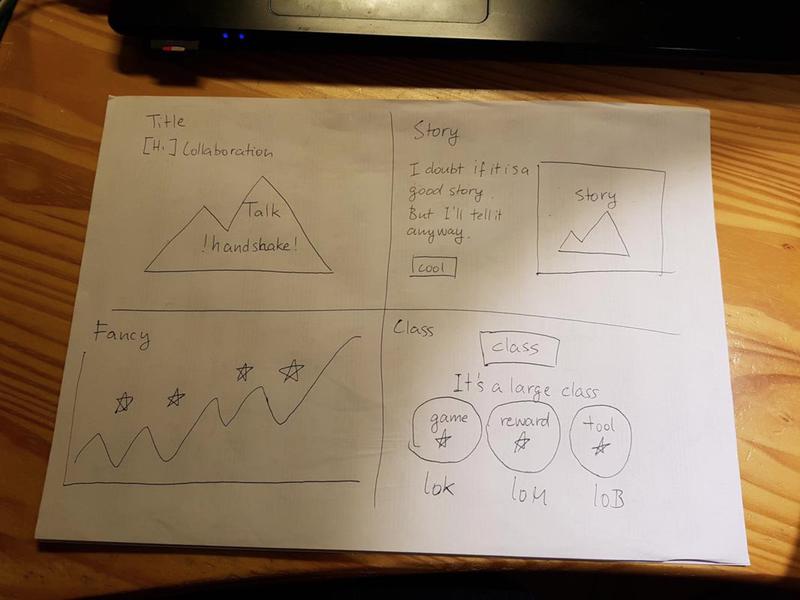 Title
[Hi] Collaboration
Talk
!handshake!
Story
I doubt if it is a
good story.
But I'll tell it
anyway.
cool
story
Fancy
Class
class
It's a large class
game
reward
tool
10K
10M
10B